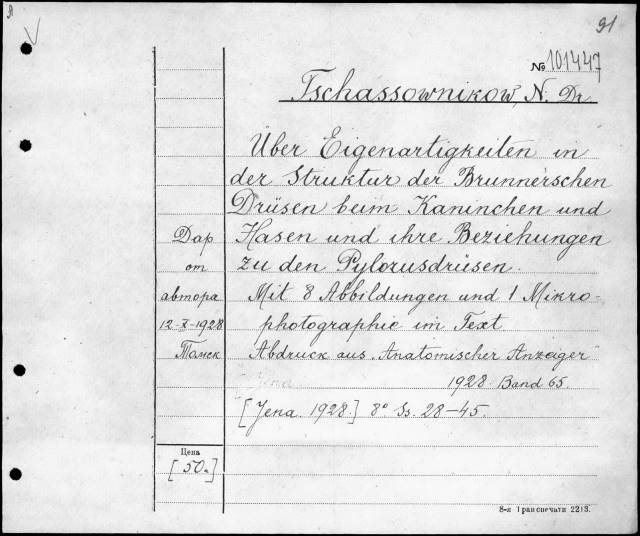 91
№ 101447
Tschassownikow, N. Dr.
Über Eigenartigkeiten in
der Struktur der Brunnerschen
Drüsen beim Kaninchen und
Hasen und ihre Beziehungen
zu den Pylorusdrüsen.
Mit 8 Abbildungen und 1 Mikro-
photographie im Text.
Abdruck aus „Anatomischer Anzeiger"
1928. Band 65.
Jena
[Jena. 1928.] 8° Ss. 28–45.
Дар
от
автора
12-X-1928
Томск
Цена
[50к]
8-я Транспечати 2213.